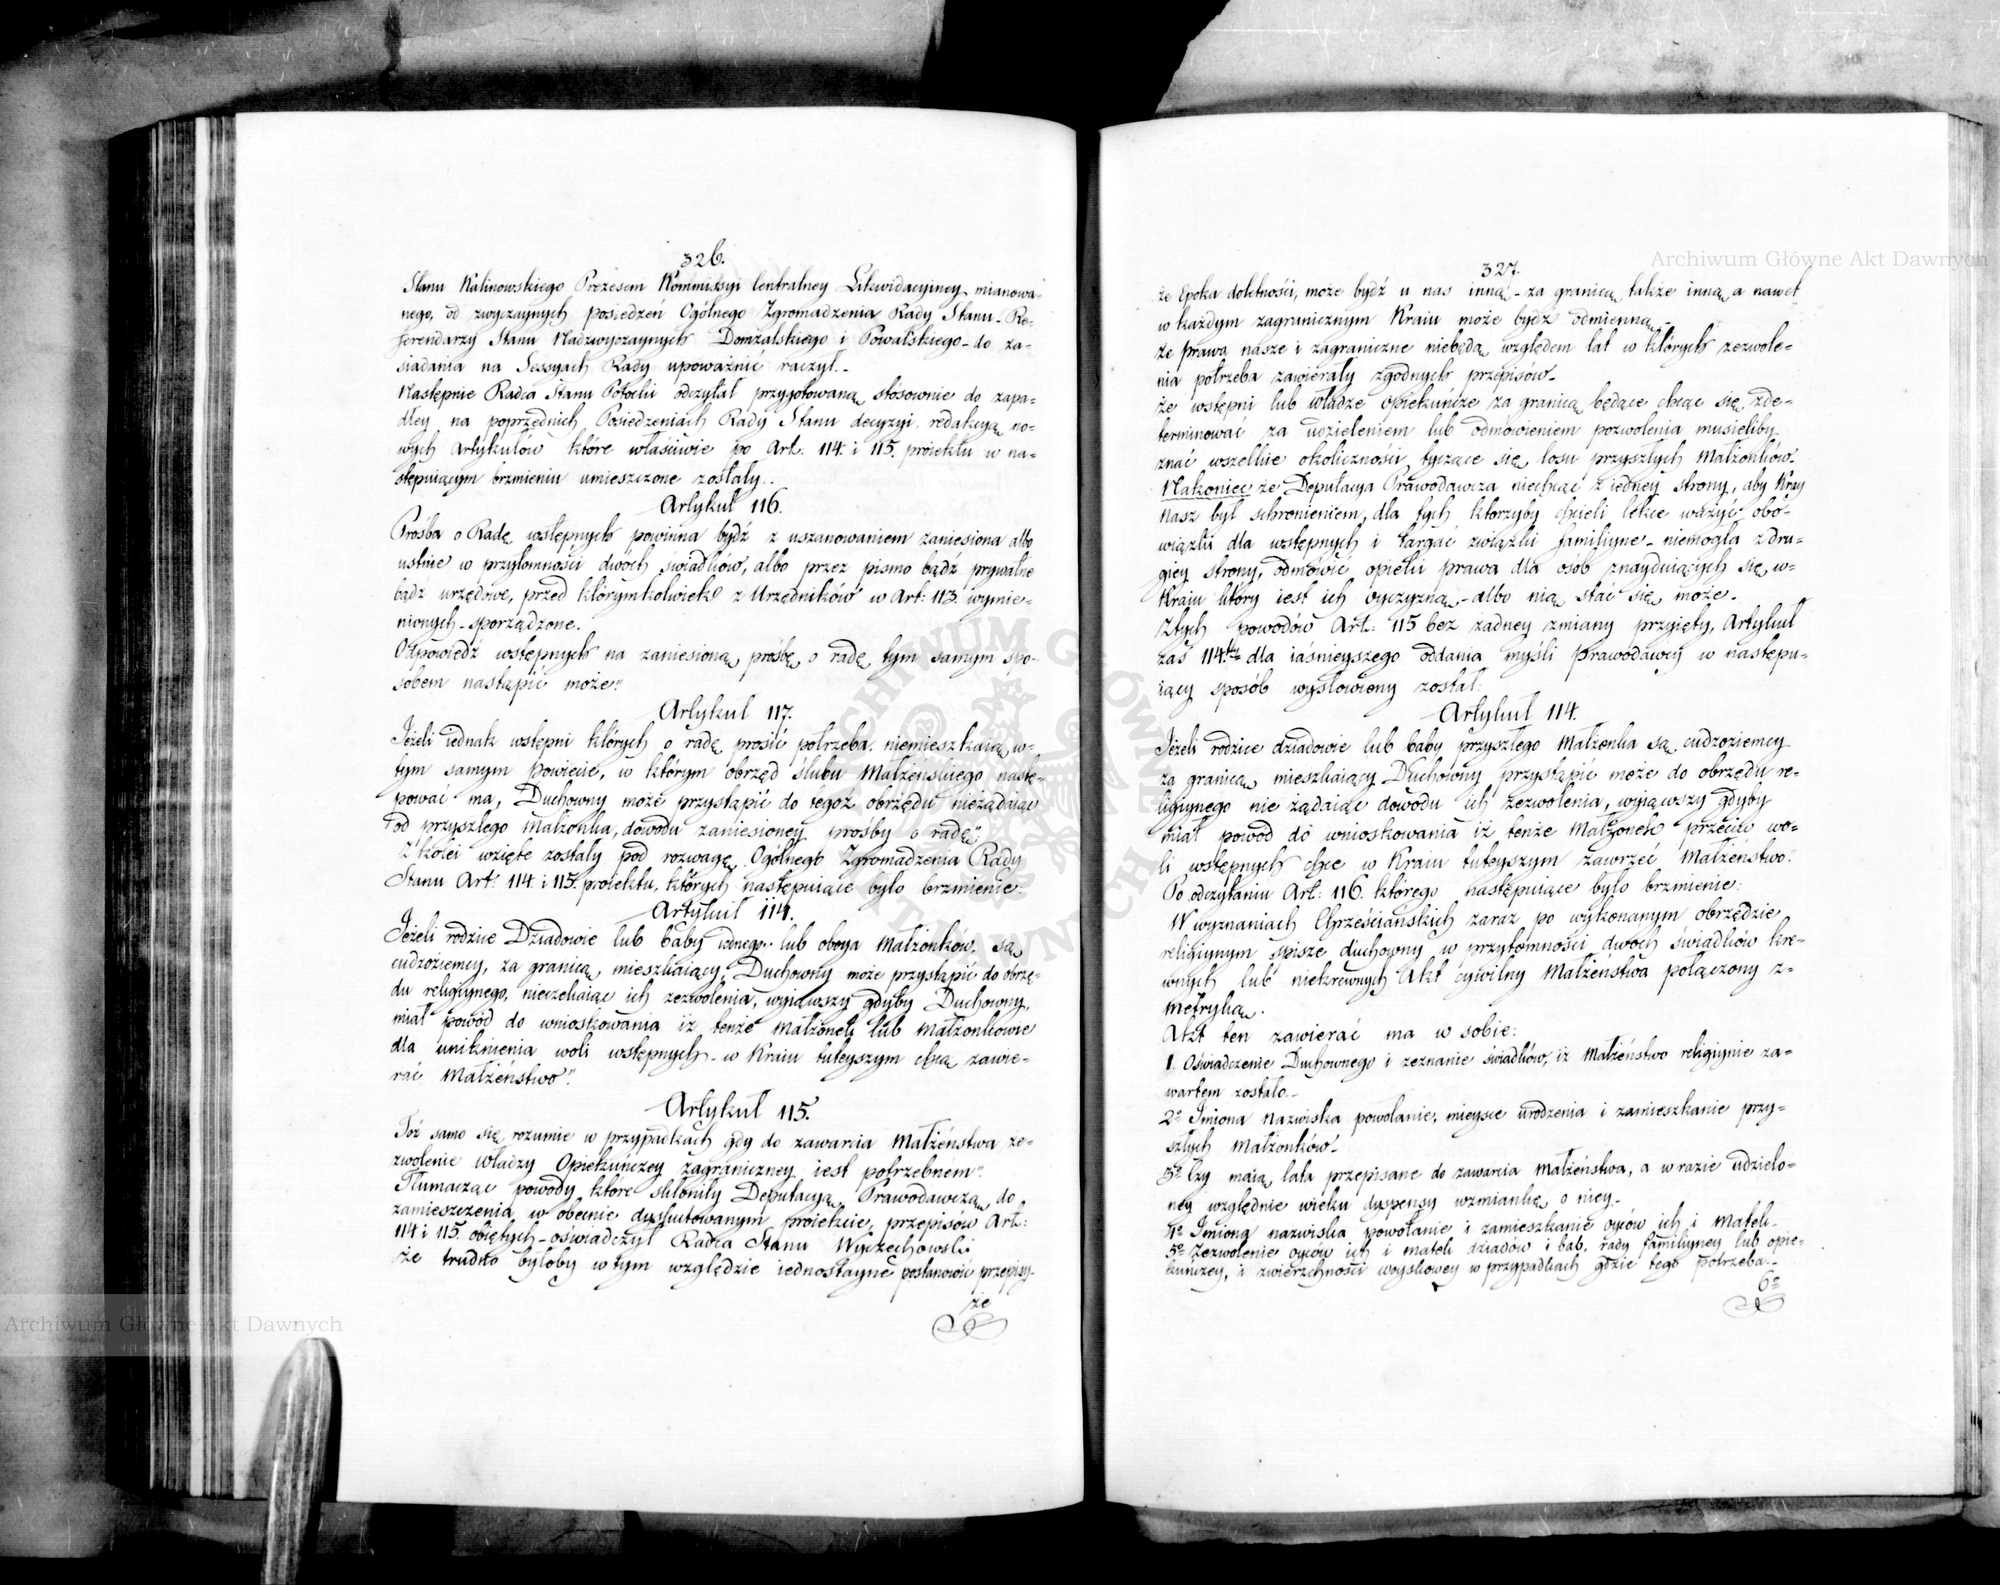 326.
Stanu Kalinowskiego Prezesem Kommissyi Centralney Likwidacyiney mianowa-
nego, od zwyczaynych posiedzeń Ogólnego Zgromadzenia Rady Stanu. Re-
ferendarzy Stanu Nadzwyczaynych Domżalskiego i Powalskiego - do za-
siadania na Sessyach Rady upoważnić raczył.
Następnie Radca Stanu Potocki odczytał przygotowaną stósownie do zapa-
dłey na poprzednich Posiedzeniach Rady Stanu decyzyi, redakcyą no-
wych artykułów które właściwie po Art: 114. i 115. proiektu w na-
stępuiącym brzmieniu umieszczone zostały.
Artykuł 116.
Prośba o Radę wstępnych powinna bydź z uszanowaniem zaniesiona albo
ustnie w przytomności dwóch świadków, albo przez pismo bądź prywatne
bądź urzędowe, przed którymkolwiek z Urzędników w Art: 113. wymie-
nionych - sporządzone.
Odpowiedź wstępnych na zaniesioną prośbę o radę tym samym spo-
sobem nastąpić może."
Artykuł 117.
Jeżeli iednak wstępni których o radę prosić potrzeba, niemieszkaią w-
tym samym Powiecie, w którym obrzęd ślubu Małżeńskiego nastę-
pować ma, Duchowny może przystąpić do tegoż obrzędu nieżądaiąc
od przyszłego Małżonka, dowodu zaniesioney prośby o radę."
Z kolei wzięte zostały pod rozwagę Ogólnego Zgromadzenia Rady
Stanu Art: 114. i 115. proiektu, których następuiące było brzmienie:
Artykuł 114.
Jeżeli rodzice Dziadowie lub baby iednego lub oboyga Małżonków, są
cudzoziemcy, za granicą mieszkaiący, Duchowny może przystąpić do obrzę-
du religiynego, nieczekaiąc ich zezwolenia, wyiąwszy gdyby Duchowny,
miał powód do wnioskowania iż tenże Małżonek lub Małżonkowie
dla uniknienia woli wstępnych - w Kraiu tuteyszym chcą zawie-
rać Małżeństwo."
Artykuł 115.
Toż samo się rozumie w przypadkach gdy do zawarcia Małżeństwa ze-
zwolenie Władzy Opiekuńczey zagraniczney iest potrzebnem".
Tłumacząc powody które skłoniły Deputacyą Prawodawczą do
zamieszczenia w obecnie dyskutowanym proiekcie, przepisów Art:
114 i 115. obiętych - oświadczył Radca Stanu Wyczechowski
że trudno byłoby w tym względzie iednostayne postanowić przepisy-
że
327.
że Epoka doletności, może bydź u nas inną - za granicą także inną a nawet
w każdym zagranicznym Kraiu może bydź odmienną -
że prawa nasze i zagraniczne niebędą względem lat w których zezwole-
nia potrzeba zawierały zgodnych przepisów -
że wstępni lub władze opiekuńcze za granicą będące chcąc się zde-
terminować za udzieleniem lub odmówieniem pozwolenia musieliby
znać wszelkie okoliczności tyczące się losu przyszłych Małżonków.
Nakoniec że Deputacya Prawodawcza niechcąc z iedney strony, aby Kray
nasz był schronieniem, dla tych którzyby chcieli lekce ważyć obo-
wiązki dla wstępnych i targać związki familiyne - niemogła z dru-
giey strony, odmówić opieki prawa dla osób znayduiących się w-
Kraiu który iest ich oyczyzną - albo nią stać się może -
Z tych powodów Art: 115 bez żadney zmiany przyięty, Artykuł
zaś 114.ty dla iaśnieyszego oddania myśli Prawodawcy w następu-
iący sposób wysłowiony został:
Artykuł 114.
Jeżeli rodzice dziadowie lub baby przyszłego Małżonka są cudzoziemcy
za granicą mieszkaiący Duchowny przystąpić może do obrzędu re-
ligiynego nie żądaiąc dowodu ich zezwolenia, wyiąwszy gdyby
miał powód do wnioskowania iż tenże Małżonek przeciw wo-
li wstępnych chce w Kraiu tuteyszym zawrzeć Małżeństwo."
Po odczytaniu Art: 116. którego następuiące było brzmienie:
W wyznaniach Chrześciańskich zaraz po wykonanym obrzędzie
religiynym spisze duchowny w przytomności dwóch świadków kre-
wnych lub niekrewnych Akt cywilny Małżeństwa połączony z-
metryką.
Akt ten zawierać ma w sobie:
1. Oświadczenie Duchownego i zeznanie świadków, iż Małżeństwo religiynie za-
wartem zostało.
2º Imiona nazwiska powołanie, mieysce urodzenia i zamieszkanie przy-
szłych Małżonków -
3º Czy maią lata przepisane do zawarcia Małżeństwa, a w razie udzielo-
ney względnie wieku dyspensy wzmiankę o niey -
4º Imiona nazwiska powołanie i zamieszkanie oyców ich i matek -
5º Zezwolenie oyców ich i matek dziadów i bab, rady familiyney lub opie-
kuńczey, i zwierzchności woyskowey w przypadkach gdzie tego potrzeba -
6º
Archiwum Główne Akt Dawnych
Archiwum Główne Akt Dawnych
ARCHIWUM GŁÓWNE AKT DAWNYCH